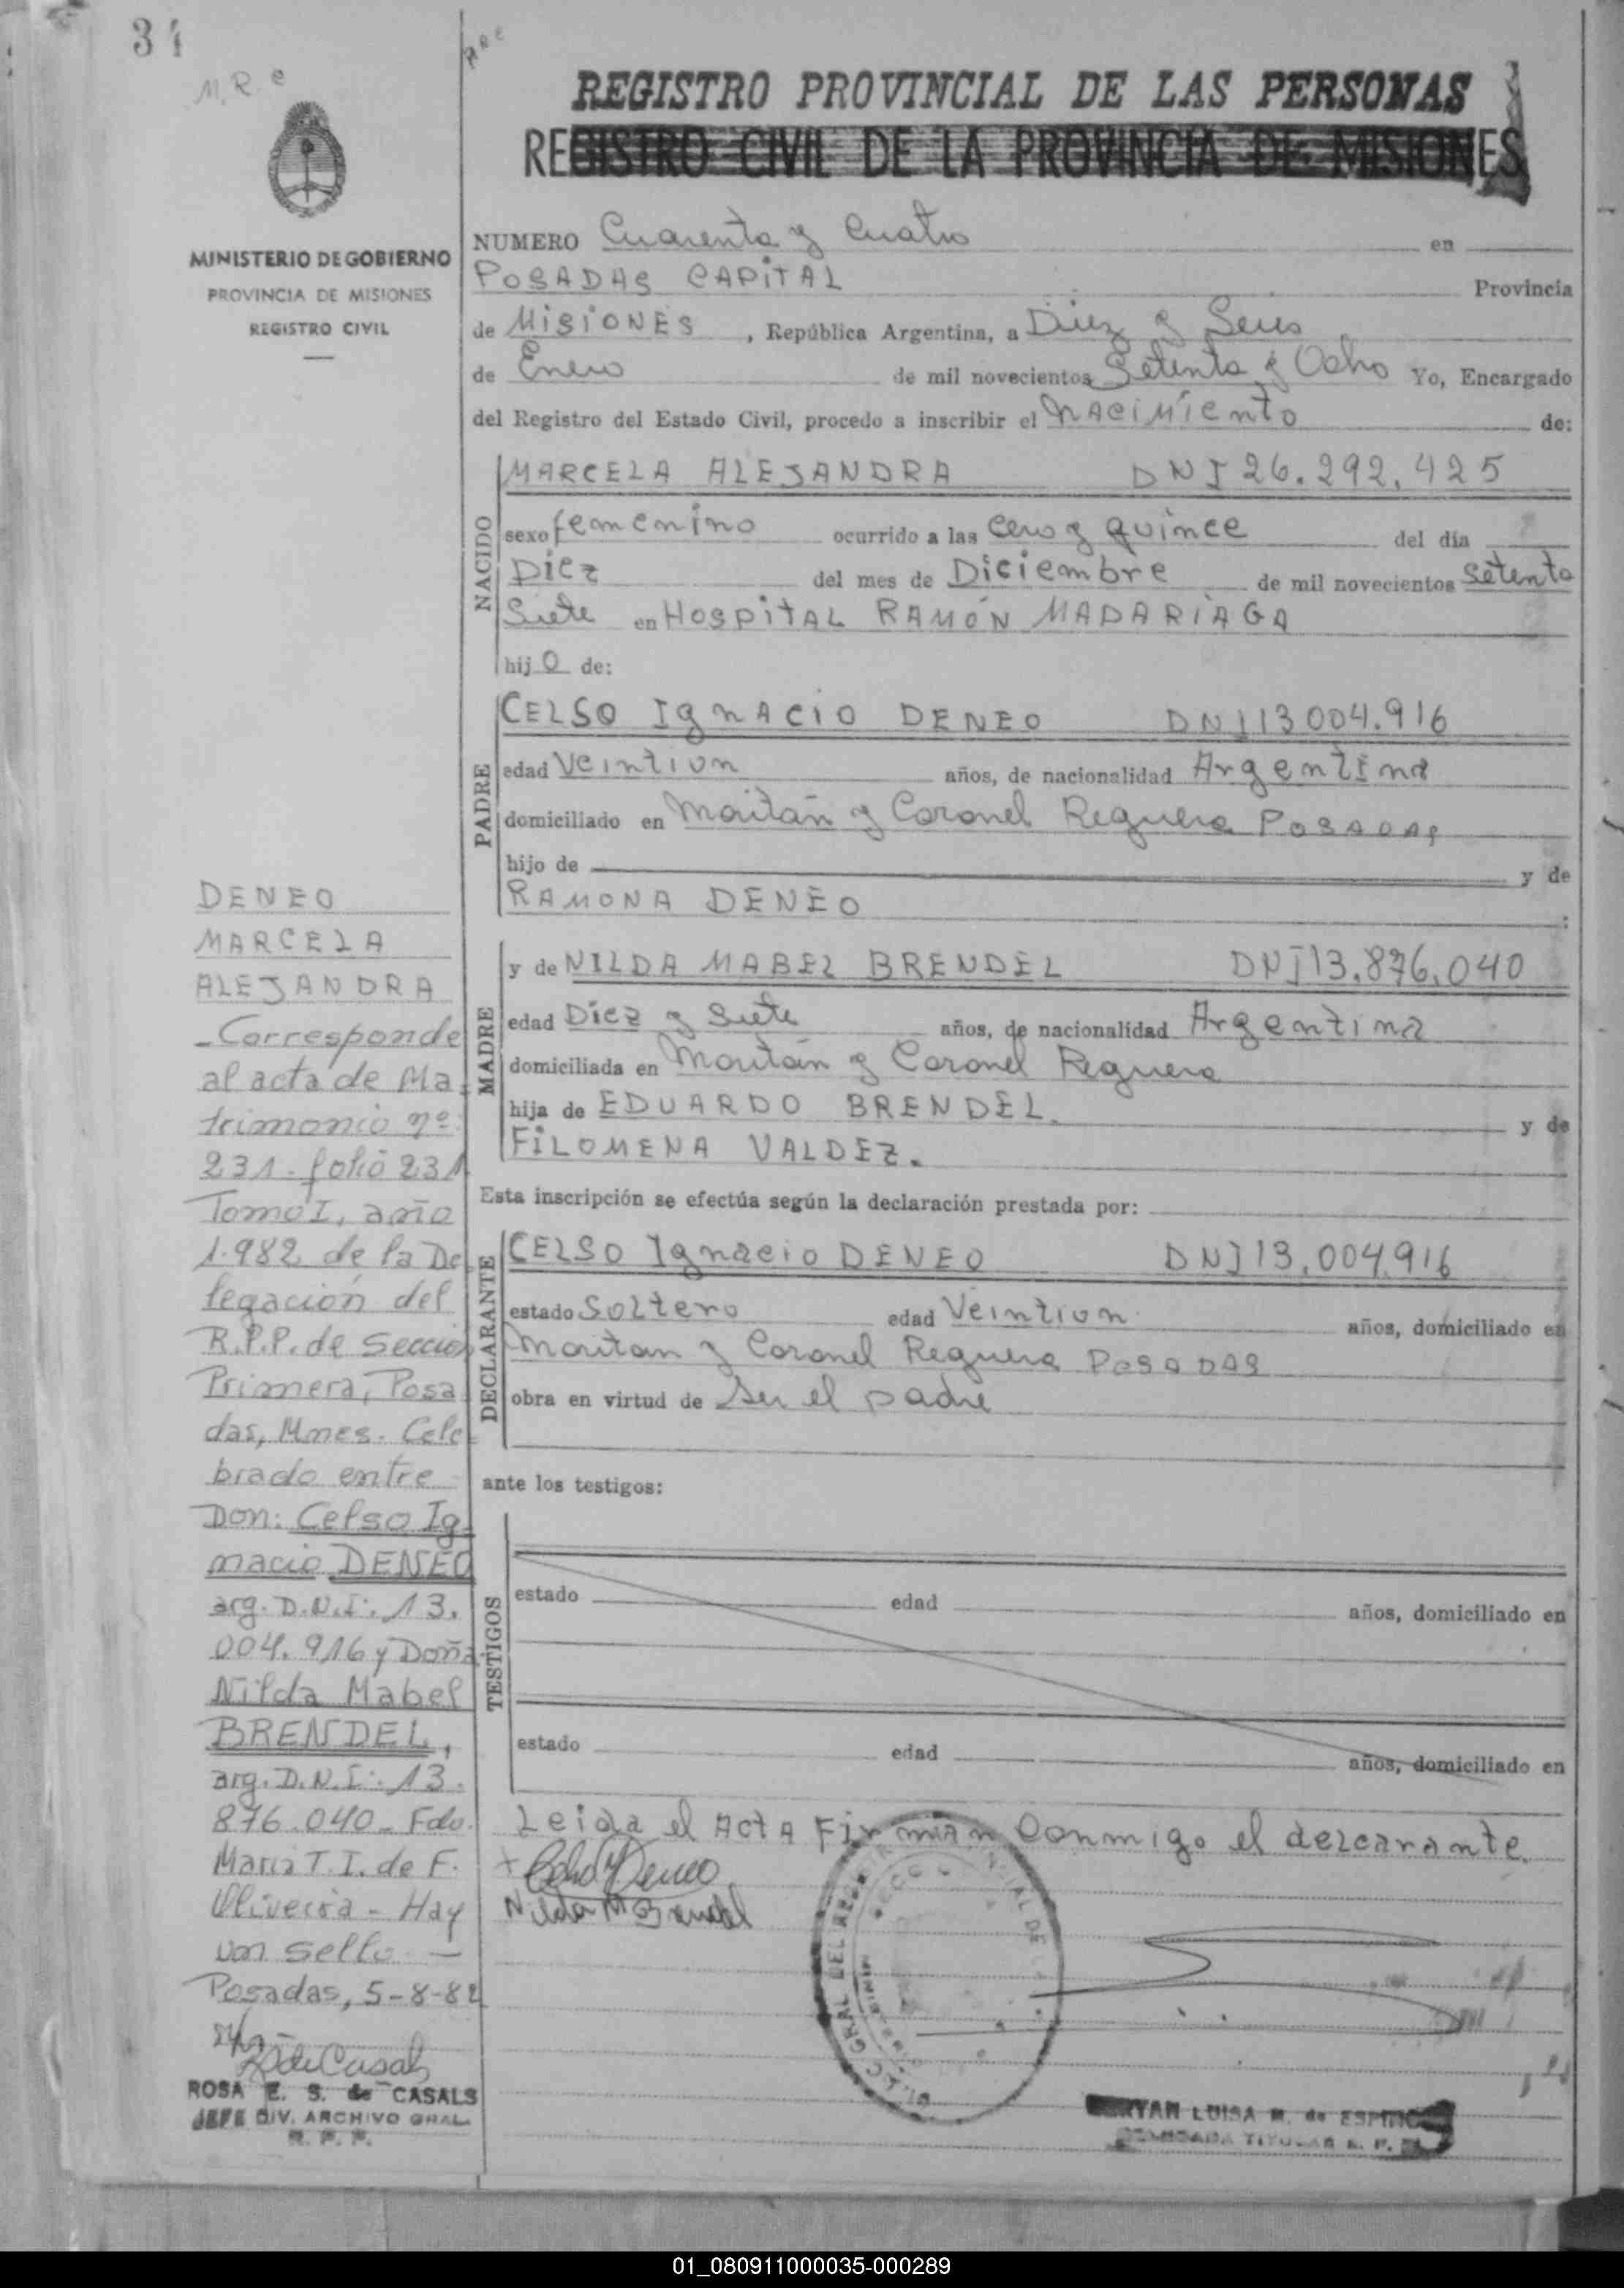 34
M.R.e
MINISTERIO DE GOBIERNO
PROVINCIA DE MISIONES
REGISTRO CIVIL
REGISTRO PROVINCIAL DE LAS PERSONAS
REGISTRO CIVIL DE LA PROVINCIA DE MISIONES
NUMERO Cuarenta y Cuatro en
POSADAS CAPITAL Provincia
de MISIONES, República Argentina, a Diez y Seis
de Enero de mil novecientos Setenta y Ocho Yo, Encargado
del Registro del Estado Civil, procedo a inscribir el Nacimiento de:
NACIDO
MARCELA ALEJANDRA DNI 26.292.425
sexo femenino ocurrido a las Cero y quince del día
Diez del mes de Diciembre de mil novecientos Setenta
Siete en HOSPITAL RAMÓN MADARIAGA
hijo de:
PADRE
CELSO Ignacio DENEO DNI 13 004.916
edad Veintiun años, de nacionalidad Argentina
domiciliado en y Coronel Reguera POSADAS
hijo de y de
RAMONA DENEO
MADRE
y de NILDA MABEL BRENDEL DNI 13.876.040
edad Diez y Siete años, de nacionalidad Argentina
domiciliada en y Coronel Reguera
hija de EDUARDO BRENDEL. y de
FILOMENA VALDEZ.
Esta inscripción se efectúa según la declaración prestada por:
DECLARANTE
CELSO Ignacio DENEO DNI 13.004.916
estado Soltero edad Veintiun años, domiciliado en
y Coronel Reguera POSADAS
obra en virtud de Ser el padre
ante los testigos:
TESTIGOS
estado edad años, domiciliado en
estado edad años, domiciliado en
Leida el Acta Firman Conmigo el dezcarante.
Celso Y Deneo
Nilda M Brendel
DENEO
MARCELA
ALEJANDRA
-Corresponde
al acta de Ma-
trimonio nº
231. folio 231
Tomo I, año
1.982 de la De
legación del
R.P.P. de Seccion
Primera, Posa
das, Mnes. Cele
brado entre
Don: Celso Ig-
nacio DENEO
arg. D.N.I: 13.
004.916 y Doña
Nilda Mabel
BRENDEL,
arg. D.N.I: 13.
876.040- Fdo.
Maria T. I. de F.
Oliveira - Hay
un sello. -
Posadas, 5-8-82
de Casals
ROSA E. S. de CASALS
JEFE DIV. ARCHIVO GRAL.
R. P. P.
LUISA M. de
01_080911000035-000289